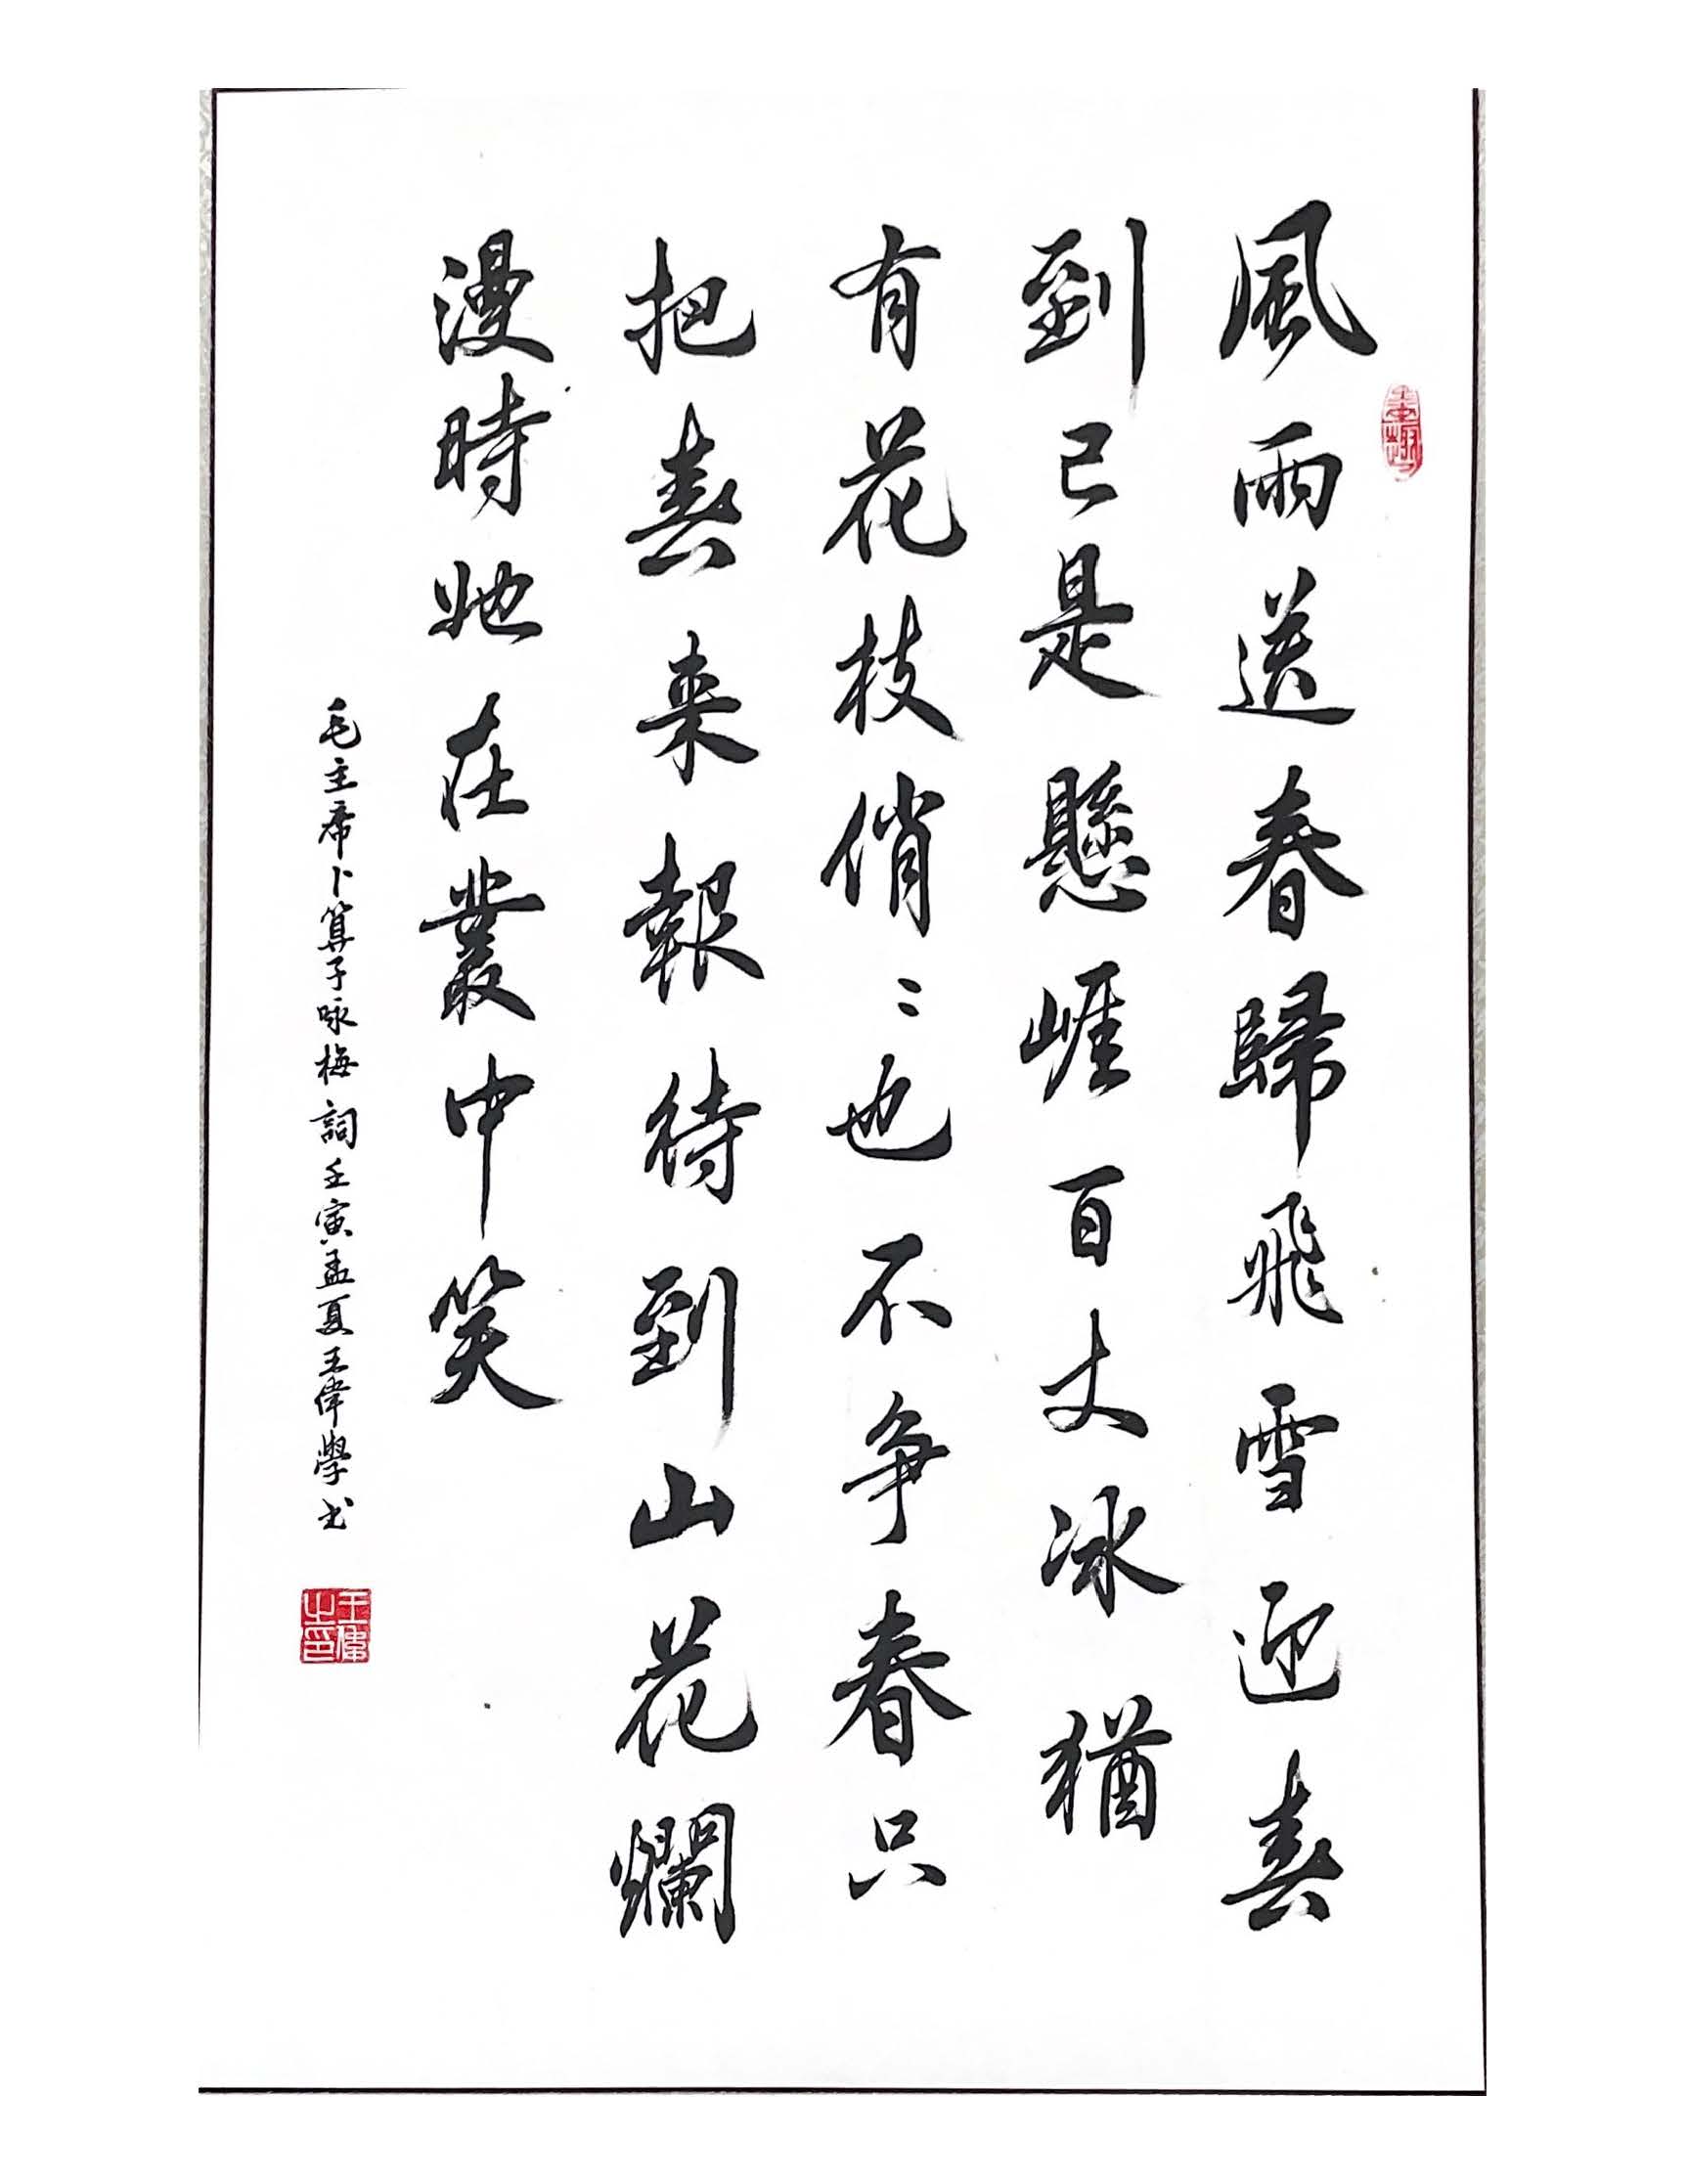 風雨送春歸飛雪迎春
到已是懸崖百丈冰猶
有花枝俏〻也不争春只
把春来報待到山花爛
漫時她在叢中笑
毛主席卜算子咏梅詞壬寅孟夏王偉學书
墨趣
王偉之印